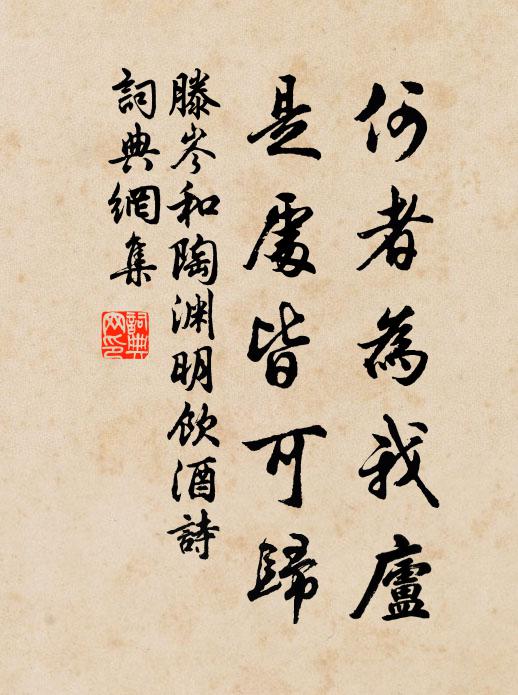 何者為我廬
是處皆可歸
滕岑和陶淵明飲酒詩
詞典網集
詞典
网印